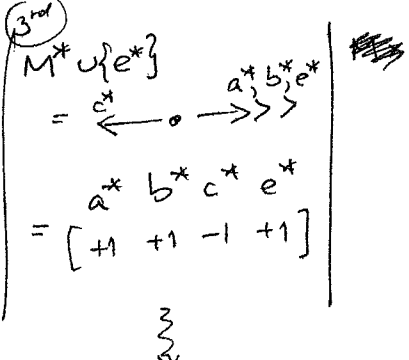 3rd
M* ∪{e*}
c* a*, b*, e*
= ← • →>>
a* b* c* e*
= [+1 +1 -1 +1]